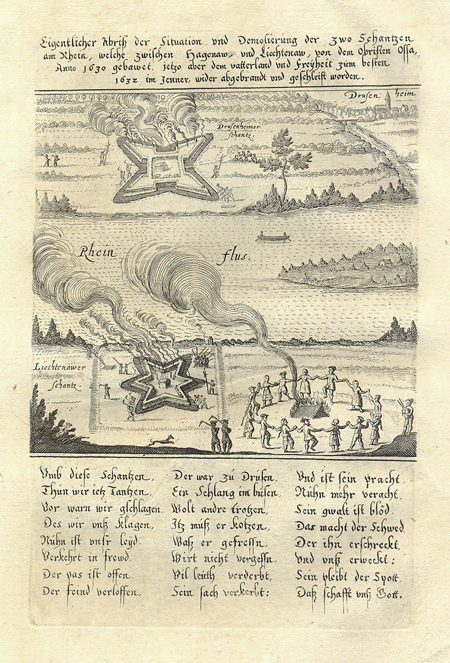 Eigentlicher Abriß der Situation und Demolierung der zwo Schantzen
am Rhein, welche zwischen Hagenaw, und Liechtenaw, von dem Obristen Ossa,
Anno 1630 gebawet, jetzo aber dem vatterland und Freyheit zum besten
1632 im Jenner, wider abgebrandt und geschleift worden.
Drusen heim
Drusenheimer
schantz.
Rhein flus.
Liechtenawer
Schantz.
Umb diese Schantzen
Thun wir ietz Tantzen,
Vor warn wir gschlagen,
Des wir unß klagen,
Nuhn ist unsr leyd
Verkehrt in freud
Der pas ist offen
Der feind verloffen.
Der war zu Drusen
Ein Schlang im busen
Wolt andre trotzen,
Itz muß er kotzen,
Waß er gefressn
Wirt nicht vergessn
Vil leuth verderbt,
Sein sach verkerbt:
Und ist sein pracht
Nuhn mehr veracht,
Sein gwalt ist blöd
Das macht der Schwed
Der ihn erschreckt
Und unß erweckt:
Sein pleibt der Spott
Daß schafft unß Gott.